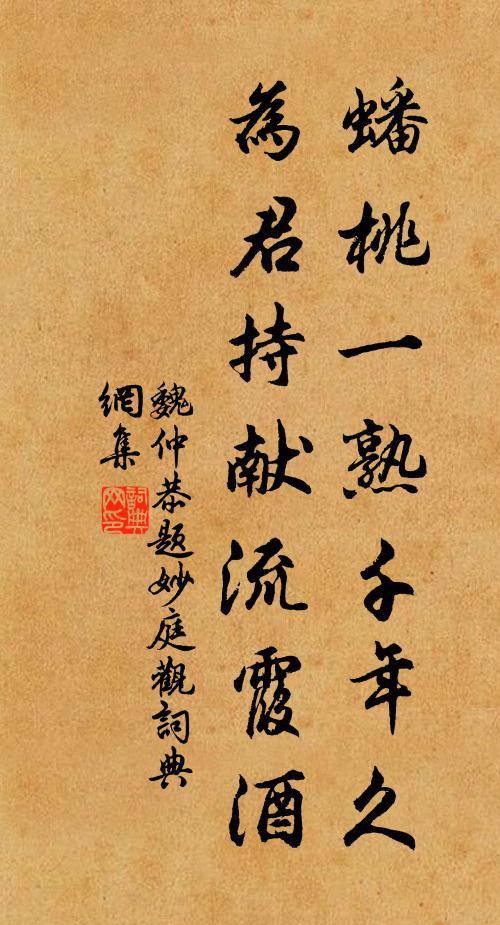 蟠桃一熟千年久
為君持献流霞酒
魏仲恭題妙庭觀詞典
網集
詞典
网印